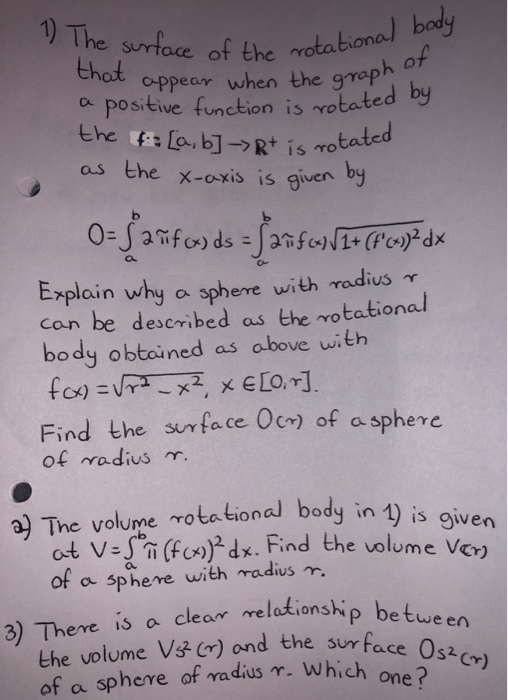 1) The surface of the rotational body
that appear when the graph of
a positive function is rotated by
the f: [a,b] → R⁺ is rotated
as the x-axis is given by
O = ∫ₐᵇ 2πf(x) ds = ∫ₐᵇ 2πf(x)√(1+(f'(x))²) dx
Explain why a sphere with radius r
can be described as the rotational
body obtained as above with
f(x) = √(r² - x²), x ∈ [0,r].
Find the surface O(r) of a sphere
of radius r.
2) The volume rotational body in 1) is given
at V = ∫ₐᵇ π (f(x))² dx. Find the volume V(r)
of a sphere with radius r.
3) There is a clear relationship between
the volume Vs²(r) and the surface Os²(r)
of a sphere of radius r. Which one?